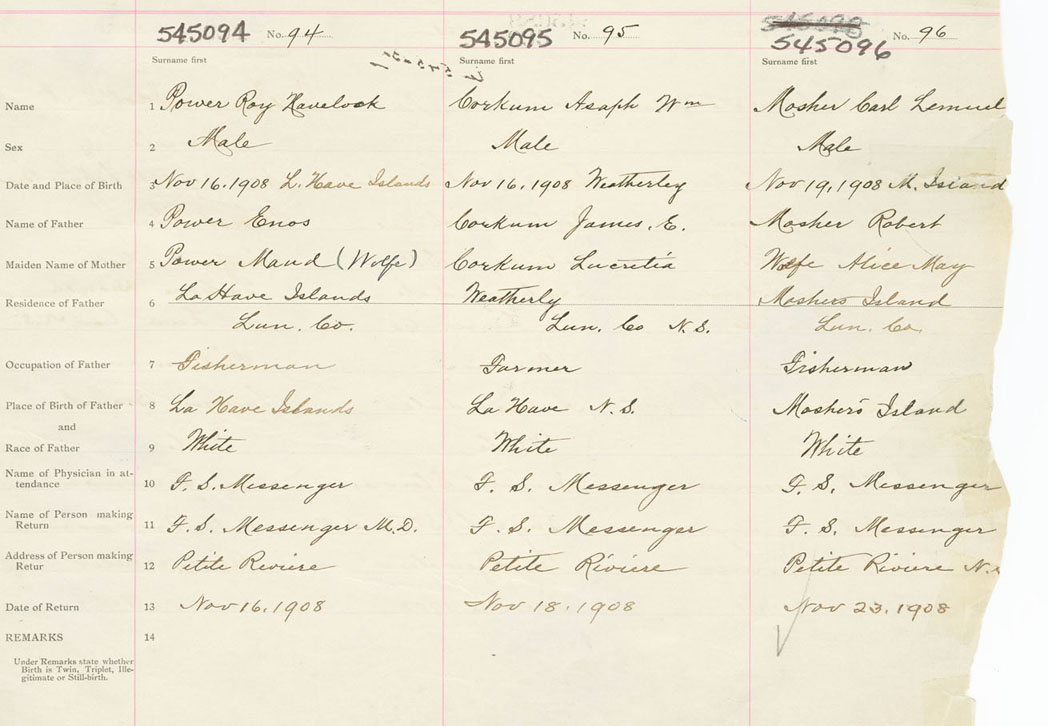 545094 No. 94 545095 No. 95 545096 No. 96
Surname first Surname first Surname first
Name 1 Power Roy Havelock Corkum Asaph Wm Mosher Carl Lemuel
Sex 2 Male Male Male
Date and Place of Birth 3 Nov 16, 1908 L. Have Islands Nov 16, 1908 Weatherley Nov 19, 1908 M. Island
Name of Father 4 Power Enos Corkum James. E. Mosher Robert
Maiden Name of Mother 5 Power Maud (Wolfe) Corkum Lucretia Wolfe Alice May
Residence of Father 6 La Have Islands Weatherly Moshers Island
Lun. Co. Lun. Co N.S. Lun. Co.
Occupation of Father 7 Fisherman Farmer Fisherman
Place of Birth of Father 8 La Have Islands La Have N.S. Mosher's Island
and
Race of Father 9 White White White
Name of Physician in at-
tendance 10 F. S. Messenger F. S. Messenger F. S. Messenger
Name of Person making
Return 11 F. S. Messenger M.D. F. S. Messenger F. S. Messenger
Address of Person making
Retur 12 Petite Riviere Petite Riviere Petite Riviere N.
Date of Return 13 Nov 16, 1908 Nov 18. 1908 Nov 23. 1908
REMARKS 14
Under Remarks state whether
Birth is Twin, Triplet, Ille-
gitimate or Still-birth.